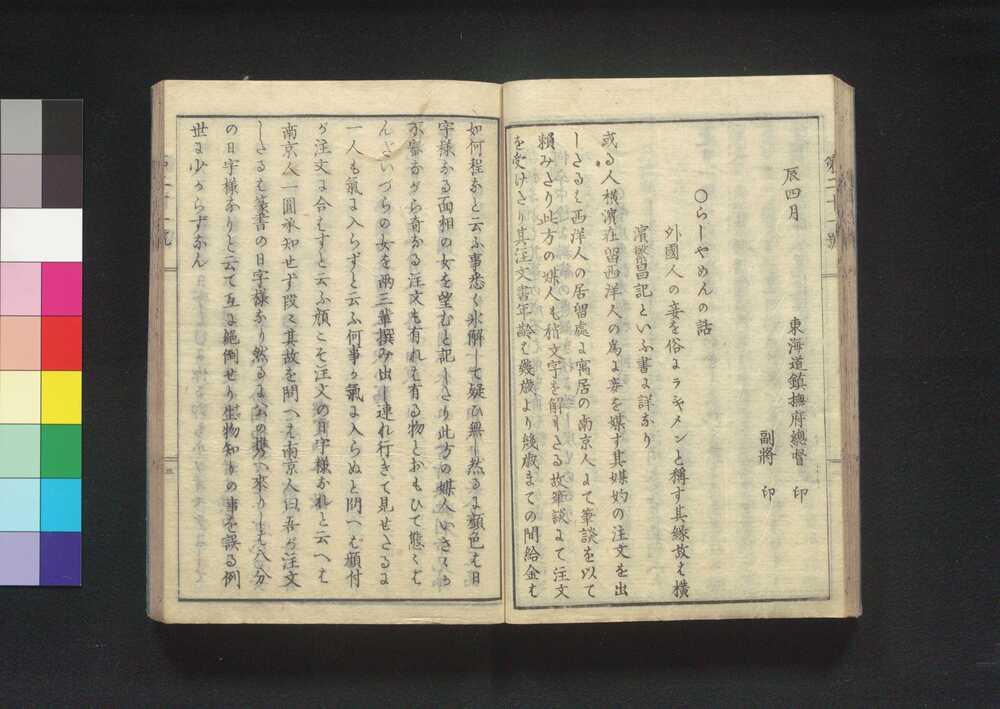 辰四月
東海道鎮撫府總督 印
副將 印
○らしやめんの話
外國人の妾を俗にラシヤメンと稱す其縁故は横
濱繁昌記といふ書に詳なり
或る人横濱在留西洋人の爲に妾を媒す其媒妁の注文を出
したるは西洋人の居留處に寓居の南京人にて筆談を以て
頼みたり此方の媒人も稍文字を解したる故筆談にて注文
を受けたり其注文書年齢は幾歳より幾歳までの間給金は
如何程なと云ふ事悉く氷解して疑ひ無し然るに顔色は日
字様なる面相の女を望むと記したり此方の媒人いさゝか
不審ながら奇なる注文も有れは有る物とおもひて態々は
んだいづらの女を兩三輩撰み出し連れ行きて見せたるに
一人も氣に入らずと云ふ何事が氣に入らぬと問へば顔付
が注文に合はずと云ふ顔こそ注文の日字様なれと云へは
南京人一圓承知せず段々其故を問へは南京人曰吾が注文
したるは篆書の日字様なり然るに公の携へ來りしは八分
の日字様なりと云て互に絶倒せり生物知りの事を誤る例
世に少からずなん